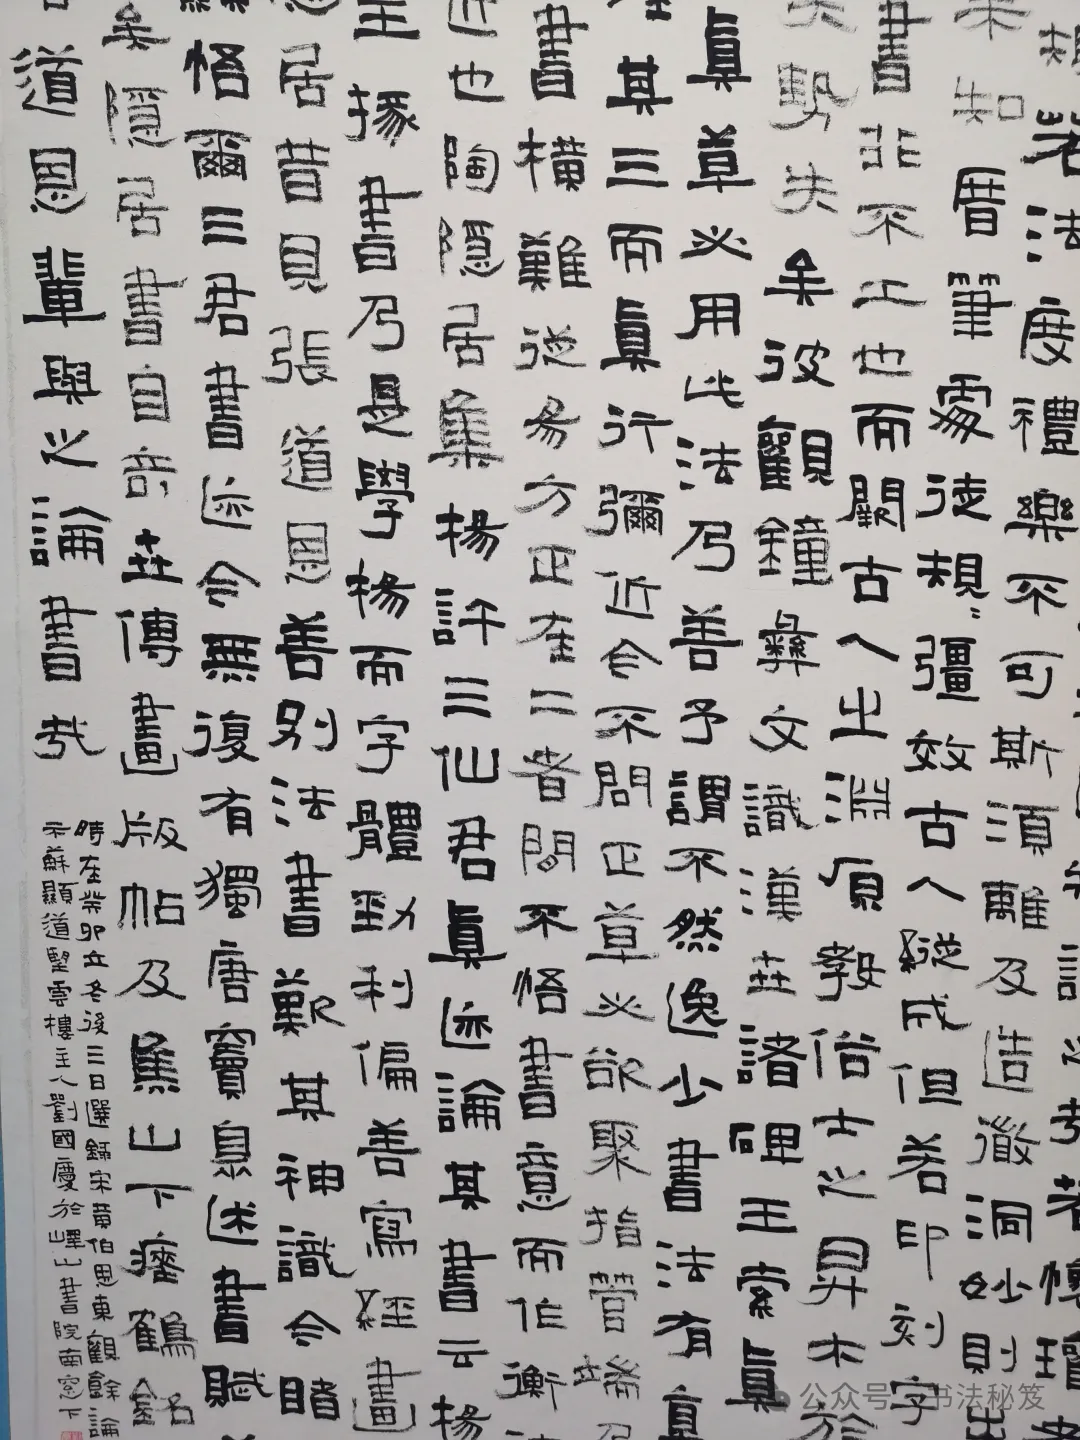 規若法度禮樂不可斯須離及造徹洞妙則出
未知厝筆處徒規規彊效古人縱成但若印刻字
書非不工也而闕古人之淵原教俗士之昇木於
失勢失矣彼觀鐘彝文識漢世諸碑王索真
真草必用此法乃善予謂不然逸少書法有真
其三而真行彌近今不問正草必欲聚指管端乃
書橫難從易方正在二者間不悟書意而作衡
近也陶隱居集楊許三仙君真迹論其書云楊
主掾書乃是學楊而字體勁利偏善寫經畫
居昔見張道恩善別法書歎其神識今睹
悟爾三君書迹今無復有獨唐竇臮述書賦
矣隱居書自奇世傳畫版帖及焦山下瘞鶴銘
道恩輩與之論書哉
時在癸卯立冬後三日選錄宋黃伯思東觀餘論
示蘇顯道堅雲樓主人劉國慶於嶧山書院南窗下
公众号 书法秘笈